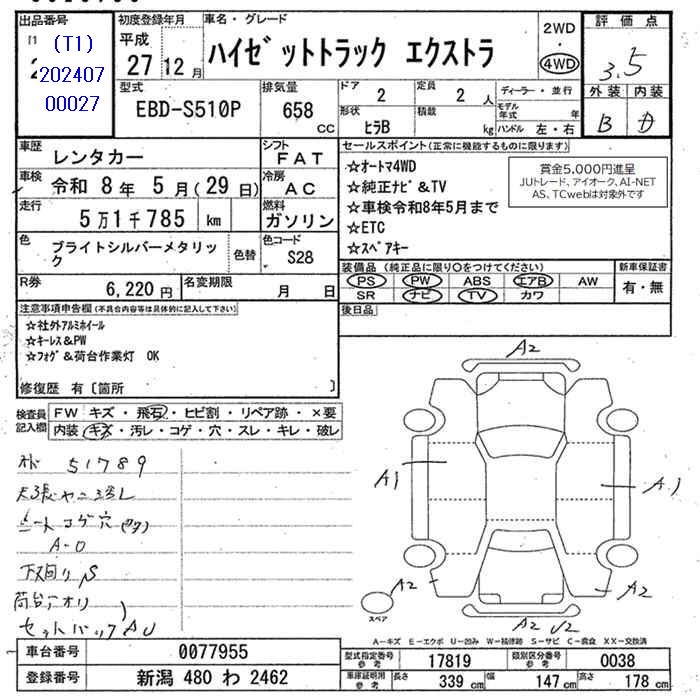 出品番号
(T1)
202407
00027
初度登録年月
平成
27 12 月
車名・グレード
ハイゼットトラック エクストラ
2WD
・
4WD
評価点
3.5
外装 内装
B D
型式
EBD-S510P
排気量
658 cc
ドア
2
定員
2 人
形状
ヒラB
積載
kg
ディーラー・並行
モデル年式 年
ハンドル 左・右
車歴
レンタカー
シフト
FAT
車検
令和 8年 5月(29日)
冷房
AC
走行
5万1千785 km
燃料
ガソリン
色
ブライトシルバーメタリック
色替
色コード
S28
R券
6,220円
名変期限
月 日
セールスポイント(正常に機能するものに限ります)
☆オートマ4WD
☆純正ナビ&TV
☆車検令和8年5月まで
☆ETC
☆スペアキー
賞金5,000円進呈
JUトレード、アイオーク、AI-NET
AS、TCwebは対象外です
装備品 (純正品に限り○をつけてください)
PS PW ABS エアB AW
SR ナビ TV カワ
新車保証書
有・無
後日品
注意事項申告欄(不具合内容等は具体的に記入して下さい)
☆社外アルミホイール
☆キーレス&PW
☆フォグ&荷台作業灯 OK
修復歴 有〔箇所 〕
検査員記入欄
FW キズ・飛石・ヒビ割・リペア跡・×要
内装 キズ・汚レ・コゲ・穴・スレ・キレ・破レ
51789
天張ヤニヨゴレ
シートコゲ穴
A-0
下回りS
荷台アオリ
セットバックAU
A2
A1
A1
A2
A2
A2 U2
スペア
A-キズ E-エクボ U-凹み W-補修跡 S-サビ C-腐食 XX-交換済
車台番号
0077955
登録番号
新潟 480 わ 2462
型式指定番号 参考
17819
類別区分番号 参考
0038
車庫証明用 参考
長さ 339 cm
幅 147 cm
高さ 178 cm